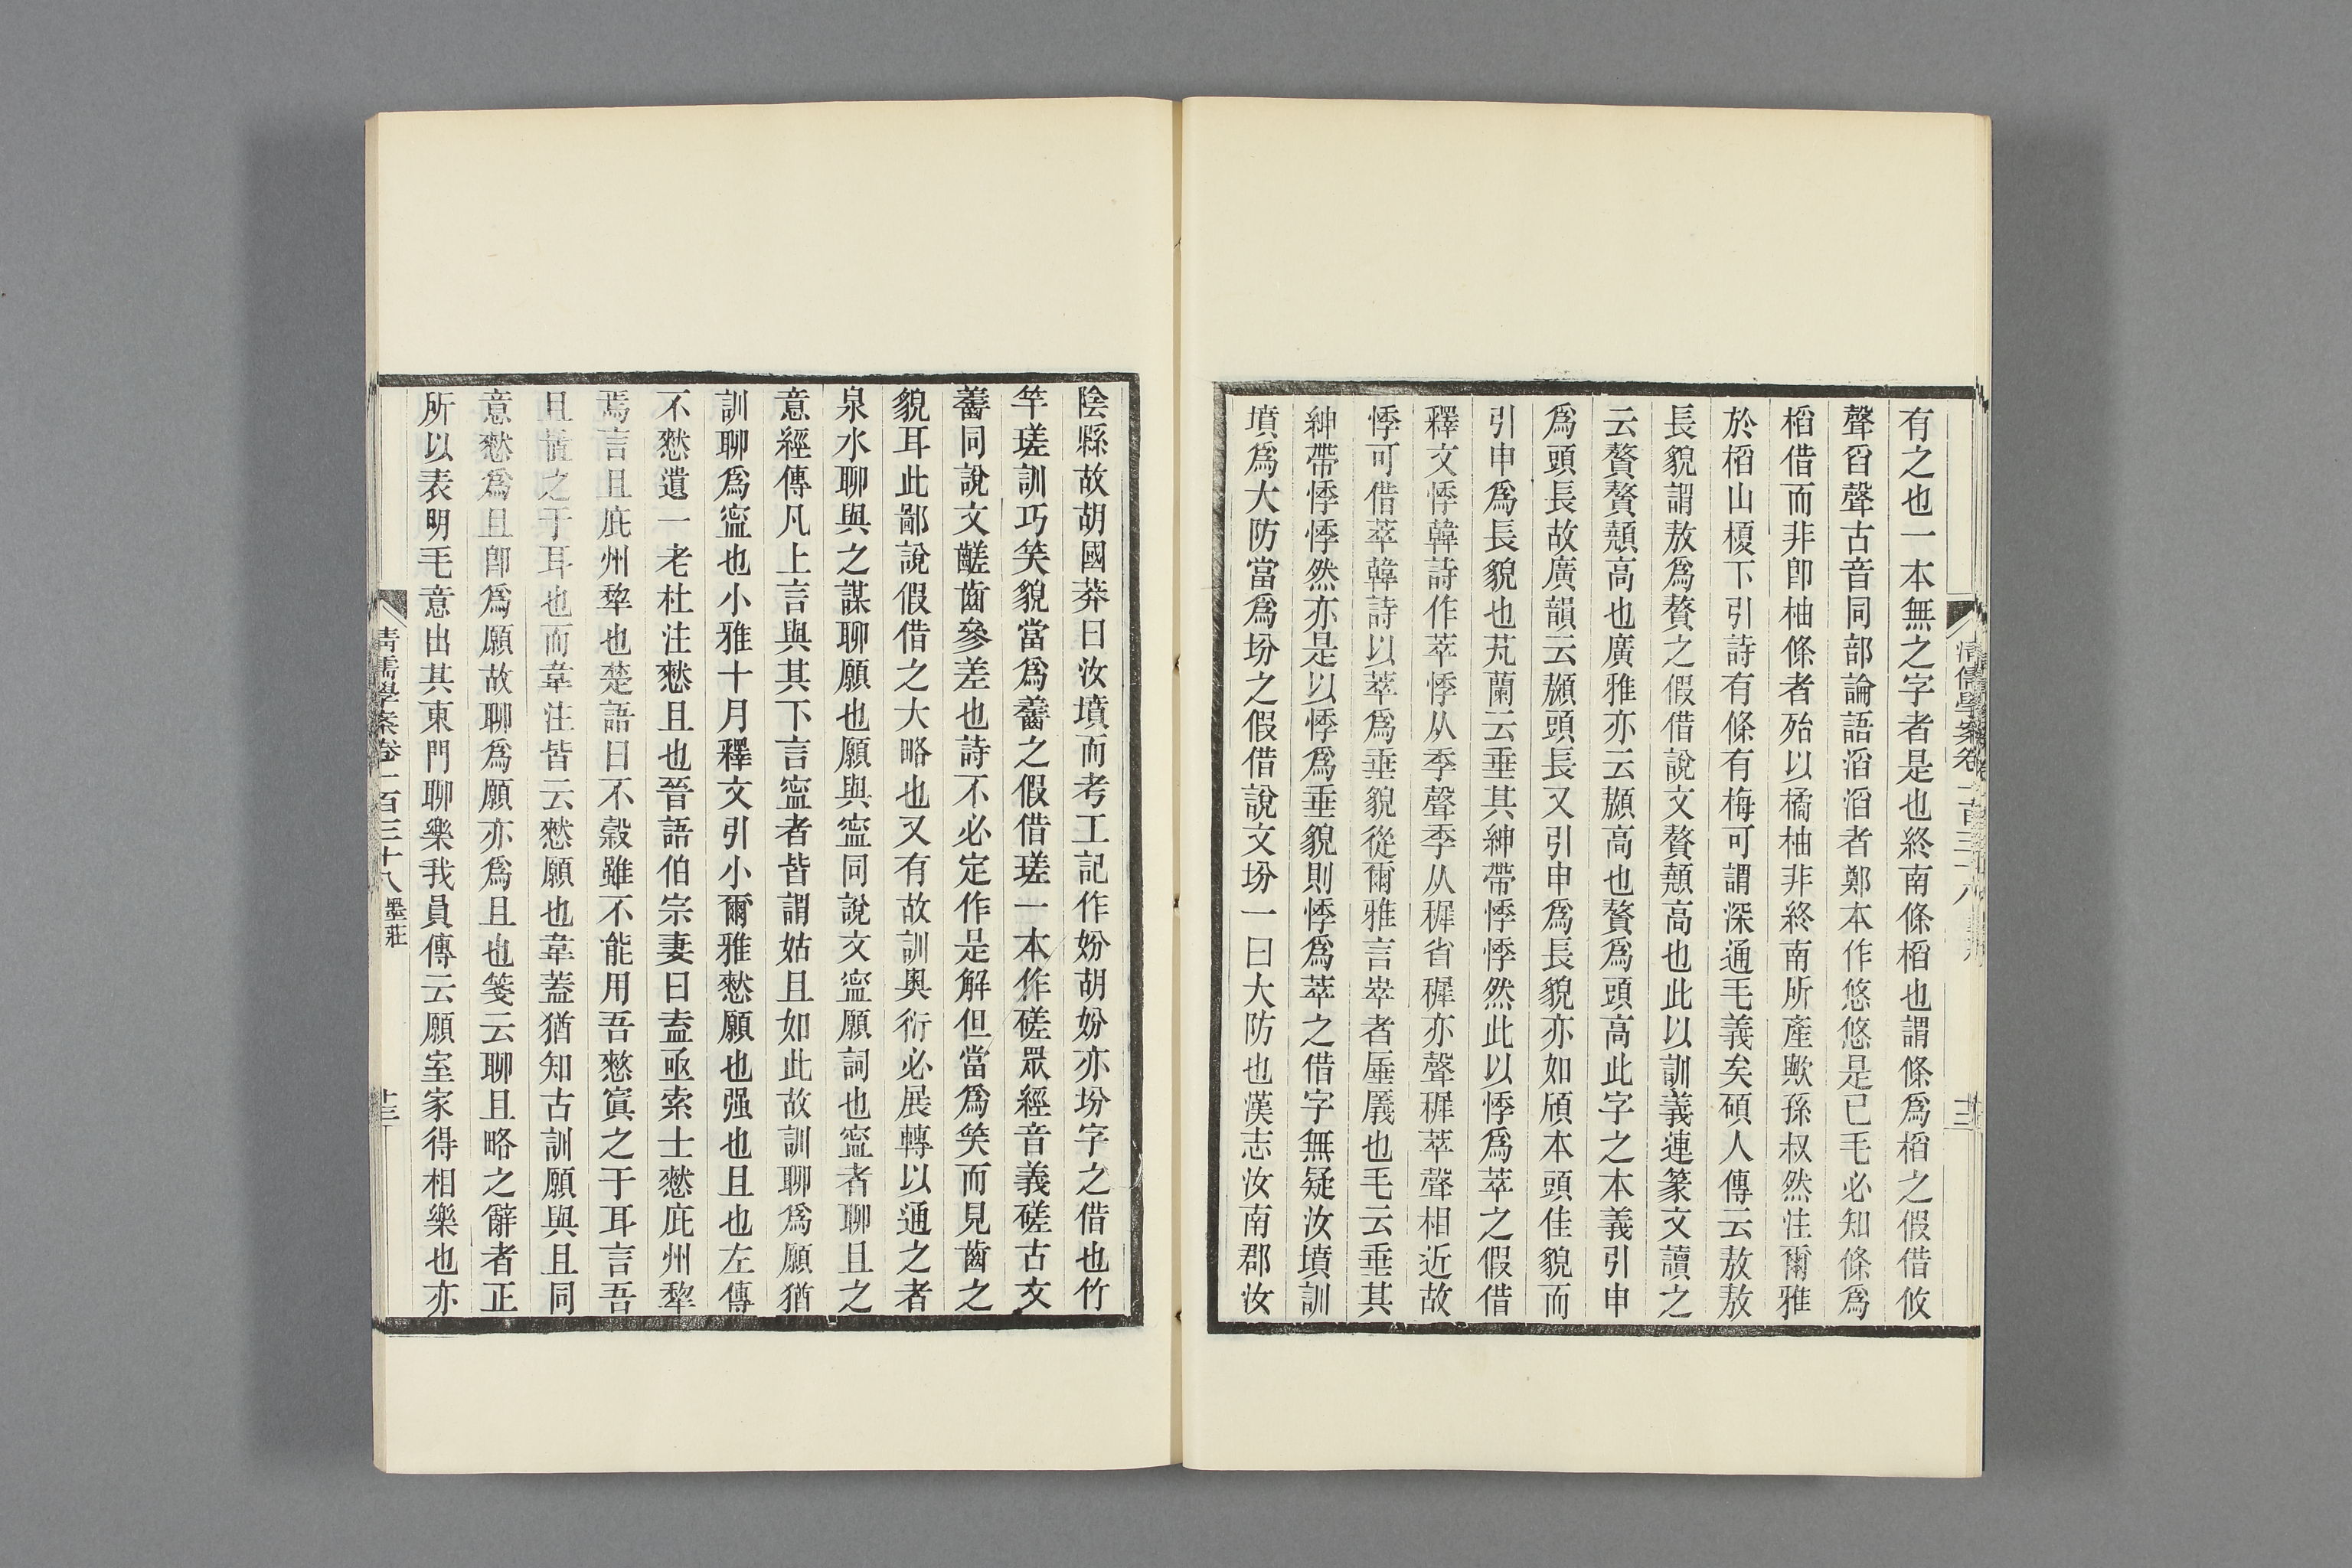 有之也一本無之字者是也終南條稻也謂條爲稻之假借攸
聲舀聲古音同部論語滔滔者鄭本作悠悠是已毛必知條爲
稻借而非卽柚條者殆以橘柚非終南所產歟孫叔然注爾雅
於稻山榎下引詩有條有梅可謂深通毛義矣碩人傳云敖敖
長貌謂敖爲贅之假借說文贅顤高也此以訓義連篆文讀之
云贅贅顤高也廣雅亦云顤高也贅爲頭高此字之本義引申
爲頭長故廣韻云顤頭長又引申爲長貌亦如頎本頭佳貌而
引申爲長貌也芄蘭云垂其紳帶悸悸然此以悸爲萃之假借
釋文悸韓詩作萃悸从季聲季从稺省稺亦聲稺萃聲相近故
悸可借萃韓詩以萃爲垂貌從爾雅言崒者厜㕒也毛云垂其
紳帶悸悸然亦是以悸爲垂貌則悸爲萃之借字無疑汝墳訓
墳爲大防當爲坋之假借說文坋一曰大防也漢志汝南郡汝
陰縣故胡國莽曰汝墳而考工記作妢胡妢亦坋字之借也竹
竿瑳訓巧笑貌當爲齹之假借瑳一本作磋眾經音義磋古文
齹同說文齹齒參差也詩不必定作是解但當爲笑而見齒之
貌耳此鄙說假借之大略也又有故訓輿衍必展轉以通之者
泉水聊與之謀聊願也願與寍同說文寍願詞也寍者聊且之
意經傳凡上言與其下言寍者皆謂姑且如此故訓聊爲願猶
訓聊爲寍也小雅十月釋文引小爾雅憖願也强也且也左傳
不憖遺一老杜注憖且也晉語伯宗妻曰盍亟索士憖庇州犂
焉言且庇州犂也楚語曰不穀雖不能用吾憖寘之于耳言吾
且置之于耳也而韋注皆云憖願也韋蓋猶知古訓願與且同
意憖爲且卽爲願故聊爲願亦爲且也箋云聊且略之辭者正
所以表明毛意出其東門聊樂我員傳云願室家得相樂也亦
清儒學案卷一百三十八 墨莊
十三